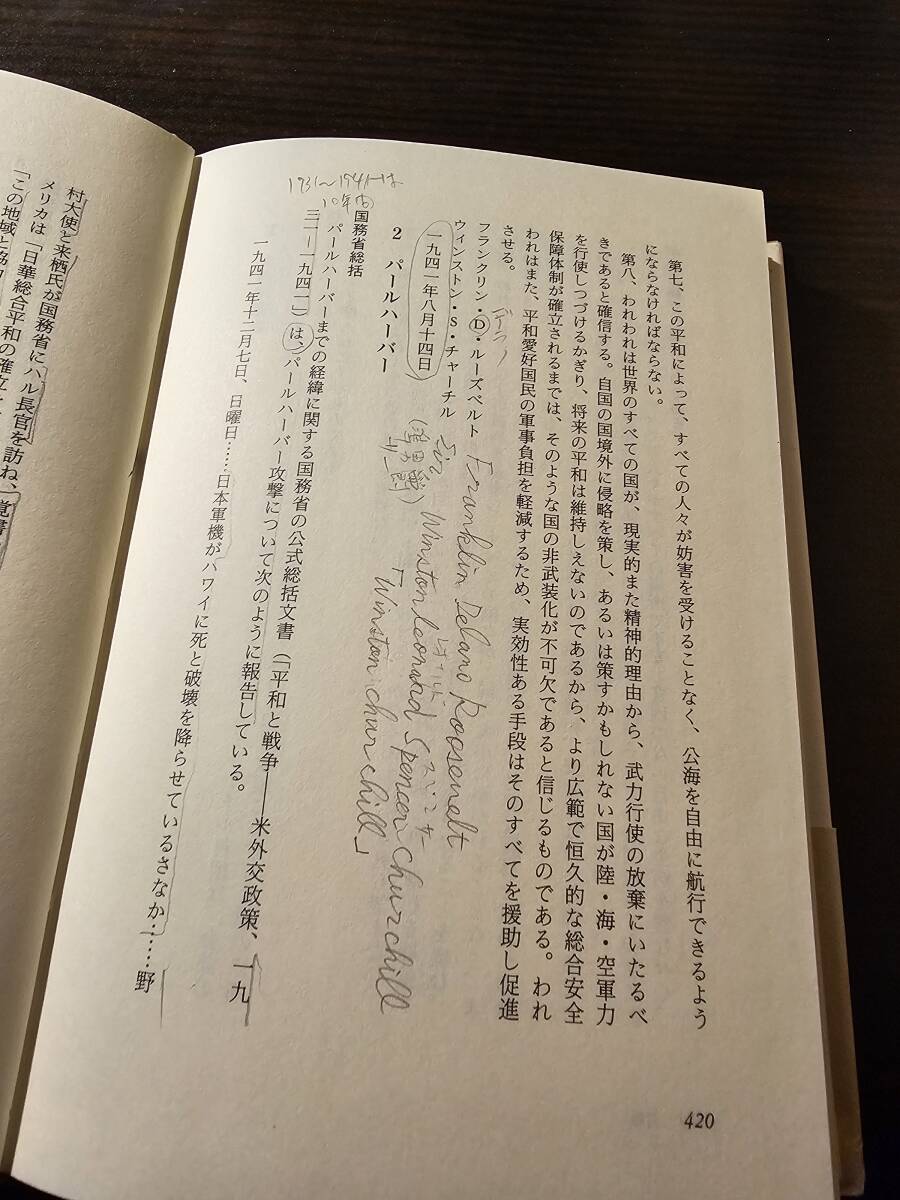 第七、この平和によって、すべての人々が妨害を受けることなく、公海を自由に航行できるよう
にならなければならない。
第八、われわれは世界のすべての国が、現実的また精神的理由から、武力行使の放棄にいたるべ
きであると確信する。自国の国境外に侵略を策し、あるいは策すかもしれない国が陸・海・空軍力
を行使しつづけるかぎり、将来の平和は維持しえないのであるから、より広範で恒久的な総合安全
保障体制が確立されるまでは、そのような国の非武装化が不可欠であると信じるものである。われ
われはまた、平和愛好国民の軍事負担を軽減するため、実効性ある手段はそのすべてを援助し促進
させる。
フランクリン・D・ルーズベルト
Franklin Delano Roosevelt
ウィンストン・S・チャーチル
Sir Winston Leonard Spencer Churchill
スペンサー
「Winston Churchill」
一九四一年八月十四日
2 パールハーバー
国務省総括
1931〜1941は
10年間
パールハーバーまでの経緯に関する国務省の公式総括文書（「平和と戦争――米外交政策、一九
三一―一九四一」）は、パールハーバー攻撃について次のように報告している。
一九四一年十二月七日、日曜日……日本軍機がハワイに死と破壊を降らせているさなか……野
村大使と来栖氏が国務省にハル長官を訪ね、覚書
メリカは「日華総合平和の確立
「この地域と
420